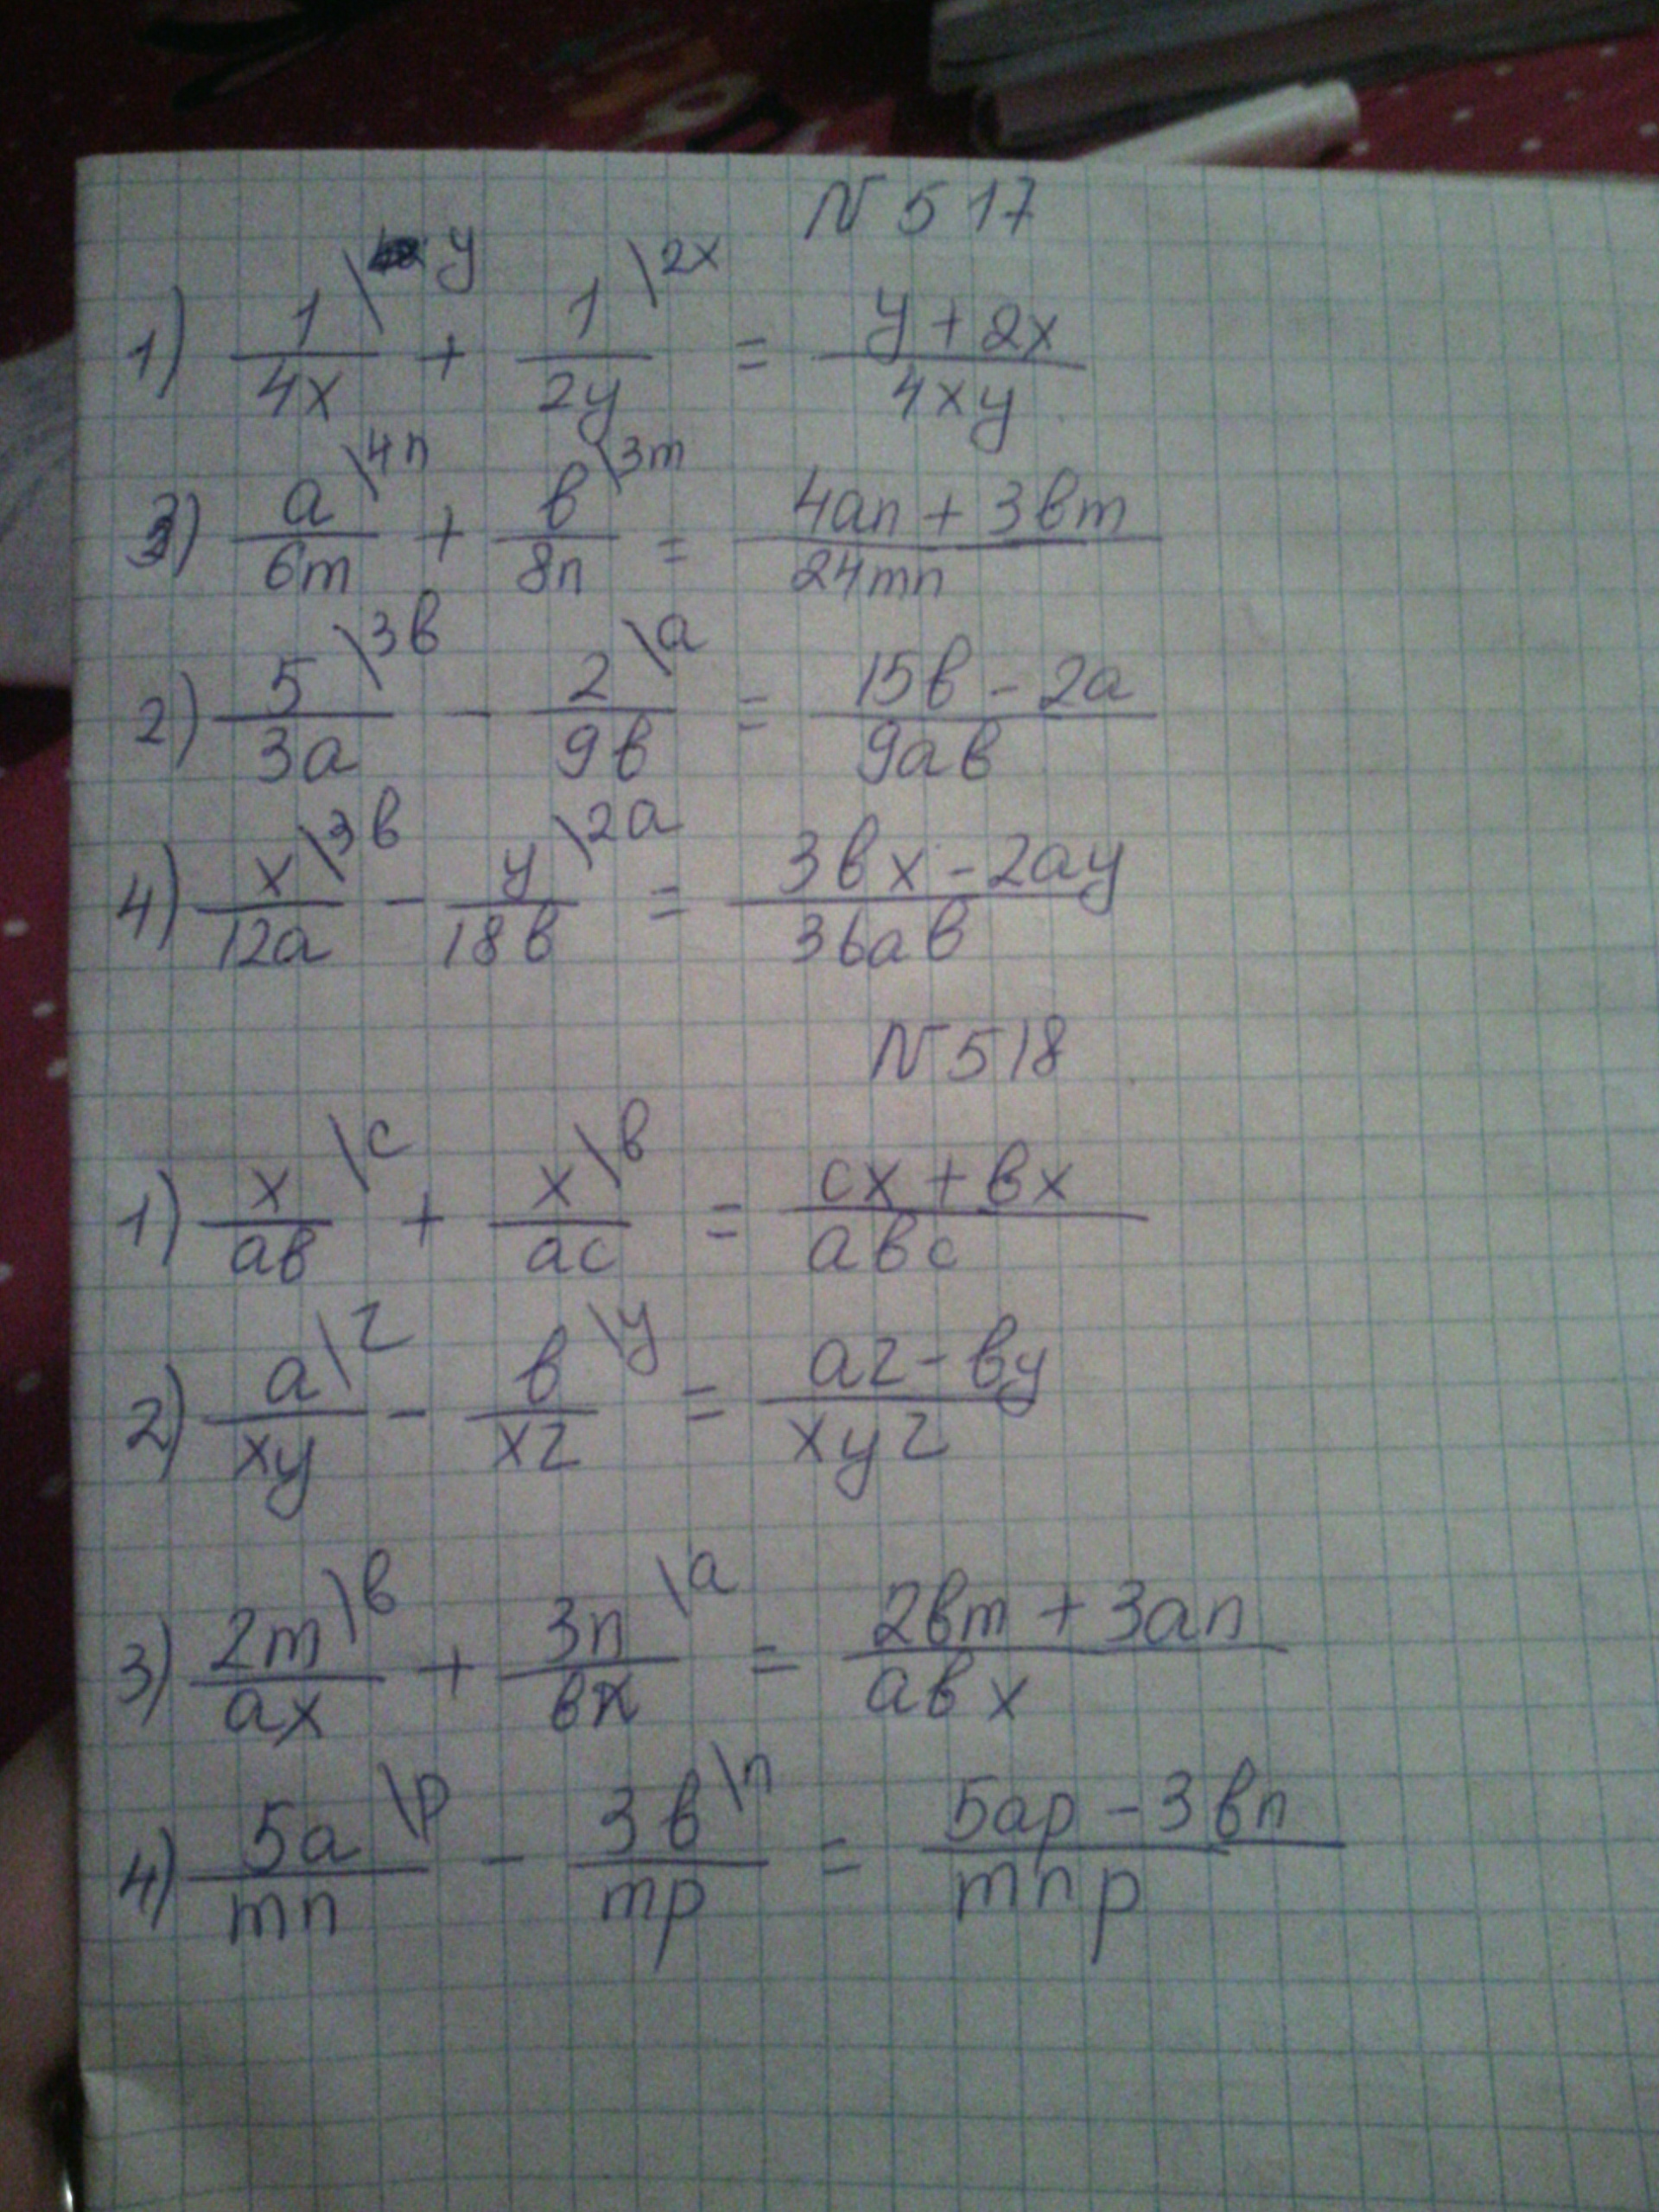 N 517
1) 1/4x \y + 1/2y \2x = (y + 2x)/4xy
3) a/6m \4n + в/8n \3m = (4an + 3вm)/24mn
2) 5/3a \3в - 2/9в \a = (15в - 2a)/9aв
4) x/12a \3в - y/18в \2a = (3вx - 2ay)/36aв
N 518
1) x/aв \c + x/ac \в = (cx + вx)/aвc
2) a/xy \z - в/xz \y = (az - вy)/xyz
3) 2m/ax \в + 3n/вx \a = (2вm + 3an)/aвx
4) 5a/mn \p - 3в/mp \n = (5ap - 3вn)/mnp